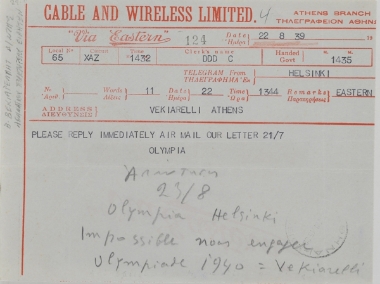 CABLE AND WIRELESS LIMITED. 4
ATHENS BRANCH
"Via Eastern"
124
Date 22 8 39
ΤΗΛΕΓΡΑΦΕΙΟΝ ΑΘΗΝΩΝ
Local No Code Time Clerks name Handed
65 XAZ 1432 DDD C Govt 1435
TELEGRAM From HELSINKI
ΤΗΛΕΓΡΑΦΗΜΑ Ἐκ
No Words 11 Date 22 Time 1344 Remarks EASTERN
ADDRESS VEKIARELLI ATHENS
ΔΙΕΥΘΥΝΣΙΣ
PLEASE REPLY IMMEDIATELY AIR MAIL OUR LETTER 21/7
OLYMPIA
23/8
Olympia Helsinki
Impossible nous engager
Olympiade 1940 = Vekiarelli